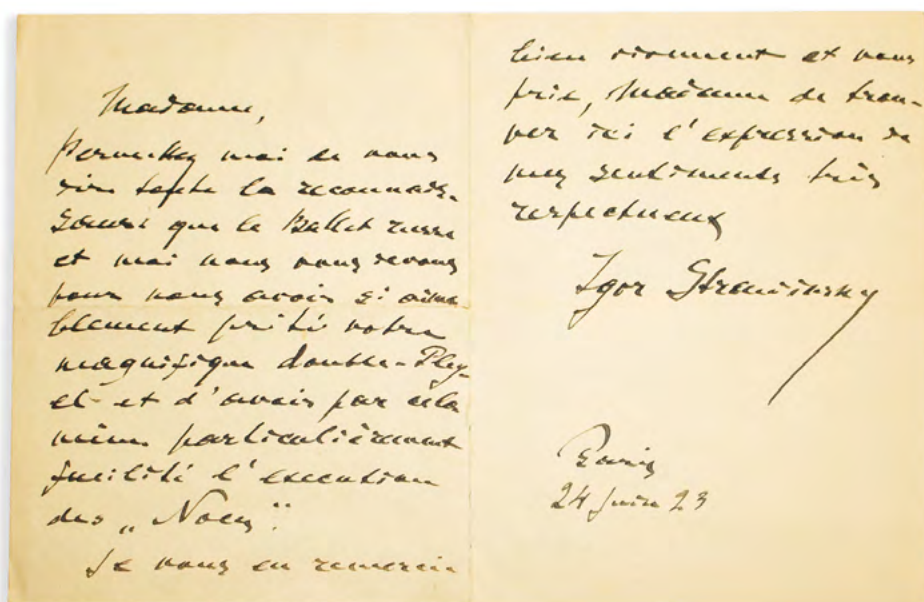 Madame,
Permettez moi de vous
dire toute la reconnais-
sance que le Ballet russe
et moi nous vous devons
pour nous avoir si aima-
blement prêté votre
magnifique double-Pley-
el et d'avoir par cela
même particulièrement
facilité l'execution
des „Noces".
Je vous en remercie
bien vivement et vous
prie, Madame de trou-
ver ici l'expression de
mes sentiments très
respectueux
Igor Strawinsky
Paris
24 juin 23